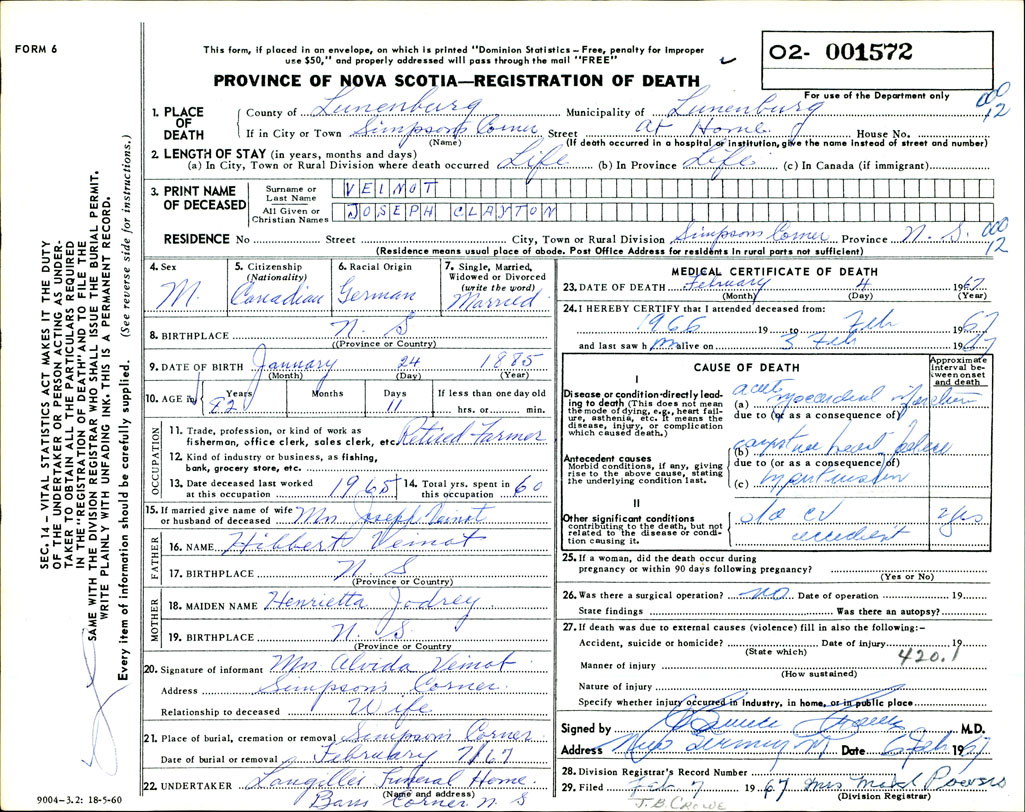 FORM 6
This form, if placed in an envelope, on which is printed "Dominion Statistics – Free, penalty for improper
use $50," and properly addressed will pass through the mail "FREE"
O2- 001572
For use of the Department only
PROVINCE OF NOVA SCOTIA—REGISTRATION OF DEATH
000
12
1. PLACE OF DEATH County of Lunenburg Municipality of Lunenburg
If in City or Town Simpson's Corner Street At Home House No.
(Name) (If death occurred in a hospital or institution, give the name instead of street and number)
2. LENGTH OF STAY (in years, months and days)
(a) In City, Town or Rural Division where death occurred Life (b) In Province Life (c) In Canada (if immigrant)
3. PRINT NAME OF DECEASED
Surname or Last Name VEINOT
All Given or Christian Names JOSEPH CLAYTON
RESIDENCE No Street City, Town or Rural Division Simpsons Corner Province N. S. 000 12
(Residence means usual place of abode. Post Office Address for residents in rural parts not sufficient)
4. Sex M.
5. Citizenship (Nationality) Canadian
6. Racial Origin German
7. Single, Married, Widowed or Divorced (write the word) Married
8. BIRTHPLACE N. S
(Province or Country)
9. DATE OF BIRTH January 24 1885
(Month) (Day) (Year)
10. AGE in Years 82 Months Days 11 If less than one day old
hrs. or min.
OCCUPATION
11. Trade, profession, or kind of work as
fisherman, office clerk, sales clerk, etc. Retired Farmer
12. Kind of industry or business, as fishing,
bank, grocery store, etc.
13. Date deceased last worked at this occupation 1965 14. Total yrs. spent in this occupation 60
15. If married give name of wife or husband of deceased Mrs Joseph Veinot
FATHER
16. NAME Hibbert Veinot
17. BIRTHPLACE N. S
(Province or Country)
MOTHER
18. MAIDEN NAME Henrietta Jodrey
19. BIRTHPLACE N. S
(Province or Country)
20. Signature of informant Mrs Alvida Veinot
Address Simpson's Corner
Relationship to deceased Wife
21. Place of burial, cremation or removal Simpson Corner
Date of burial or removal February 7/67
22. UNDERTAKER Langilles Funeral Home
(Name and address)
Bars Corner N S
MEDICAL CERTIFICATE OF DEATH
23. DATE OF DEATH February 4 1967
(Month) (Day) (Year)
24. I HEREBY CERTIFY that I attended deceased from:
1966 19 to Feb 1967
and last saw h m alive on 3 Feb 1967
CAUSE OF DEATH
Approximate interval between onset and death
I
Disease or condition directly leading to death (This does not mean the mode of dying, e.g., heart failure, asthenia, etc. It means the disease, injury, or complication which caused death.)
(a) acute myocardial infarction
due to (or as a consequence of)
Antecedent causes
Morbid conditions, if any, giving rise to the above cause, stating the underlying condition last.
(b) heart
due to (or as a consequence of)
(c) hypertension
II
Other significant conditions
contributing to the death, but not related to the disease or condition causing it.
old cv accident 2 yrs
25. If a woman, did the death occur during
pregnancy or within 90 days following pregnancy?
(Yes or No)
26. Was there a surgical operation? no Date of operation 19
State findings Was there an autopsy?
27. If death was due to external causes (violence) fill in also the following:–
Accident, suicide or homicide? Date of injury 19
(State which)
420.1
Manner of injury
(How sustained)
Nature of injury
Specify whether injury occurred in industry, in home, or in public place
Signed by M.D.
Address Date 6 Feb 1967
28. Division Registrar's Record Number
29. Filed Feb 7 1967 Mrs Powers
(Division Registrar)
J. B. CROWE
SEC. 14 – VITAL STATISTICS ACT MAKES IT THE DUTY
OF THE UNDERTAKER OR PERSON ACTING AS UNDER-
TAKER TO OBTAIN ALL THE PARTICULARS REQUIRED
IN THE "REGISTRATION OF DEATH" AND TO FILE THE
SAME WITH THE DIVISION REGISTRAR WHO SHALL ISSUE THE BURIAL PERMIT.
WRITE PLAINLY WITH UNFADING INK. THIS IS A PERMANENT RECORD.
Every item of information should be carefully supplied. (See reverse side for instructions.)
9004–3.2: 18-5-60